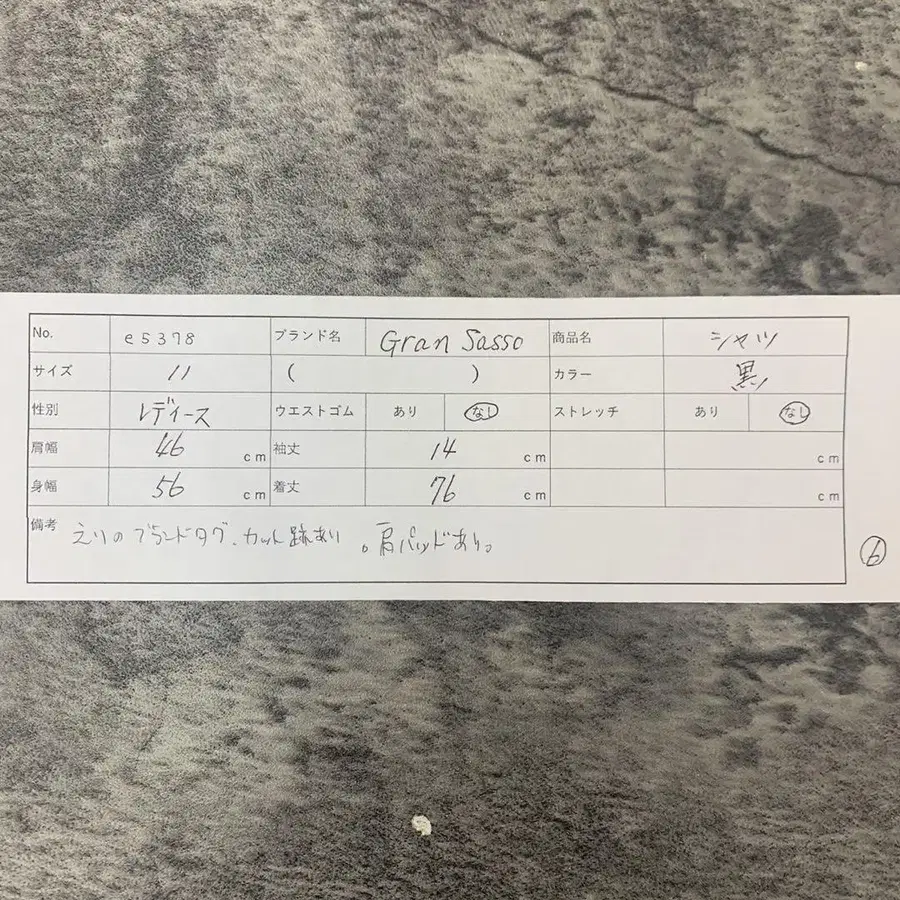 No. e5378 ブランド名 Gran Sasso 商品名 シャツ
サイズ 11 ( ) カラー 黒
性別 レディース ウエストゴム あり なし ストレッチ あり なし
肩幅 46 cm 袖丈 14 cm cm
身幅 56 cm 着丈 76 cm cm
備考 えりのブランドタグ、カット跡あり。肩パッドあり。
6